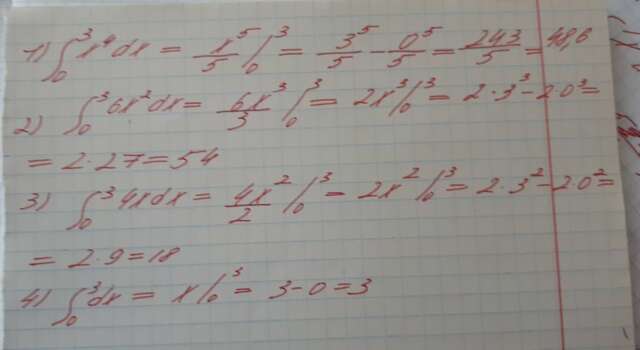 1) ∫₀³ x⁴ dx = x⁵/5 |₀³ = 3⁵/5 - 0⁵/5 = 243/5 = 48,6
2) ∫₀³ 6x² dx = 6x³/3 |₀³ = 2x³ |₀³ = 2·3³ - 2·0³ =
= 2·27 = 54
3) ∫₀³ 4x dx = 4x²/2 |₀³ - 2x² |₀³ = 2·3² - 2·0² =
= 2·9 = 18
4) ∫₀³ dx = x |₀³ = 3 - 0 = 3